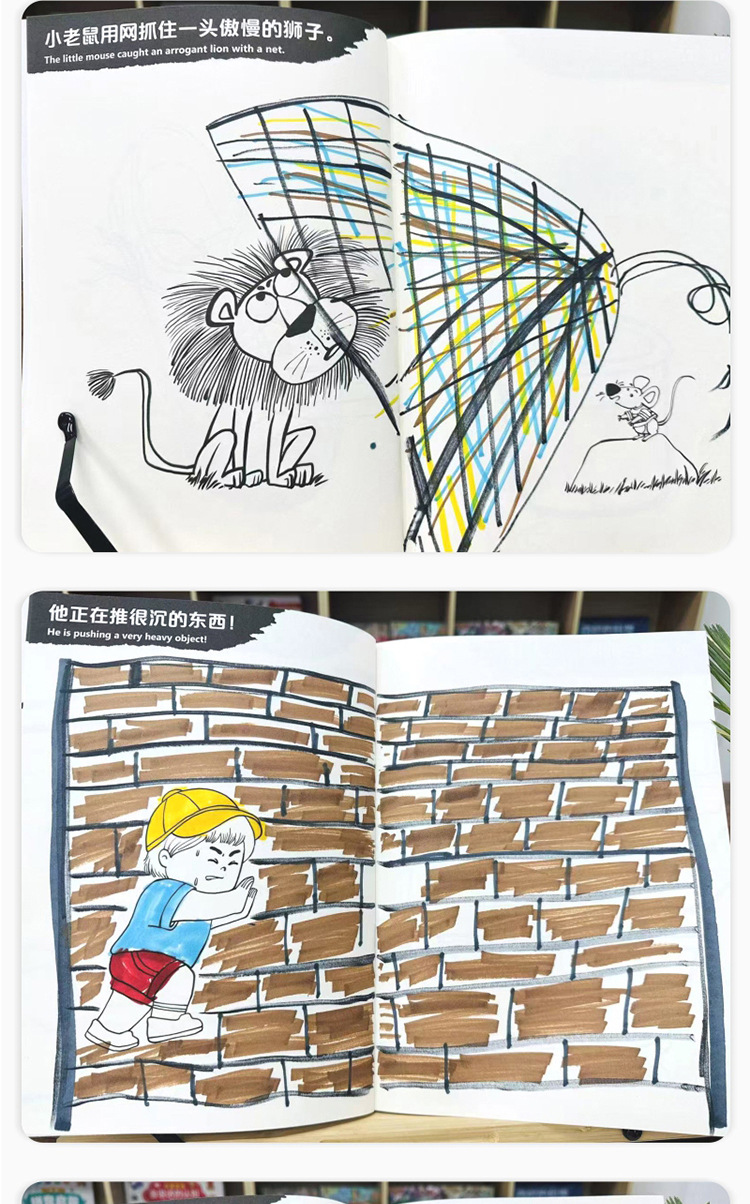 小老鼠用网抓住一头傲慢的狮子。
The little mouse caught an arrogant lion with a net.
他正在推很沉的东西！
He is pushing a very heavy object!